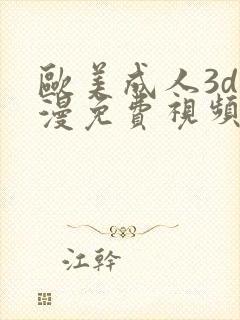 歐美成人3d
漫免費視頻
江幹